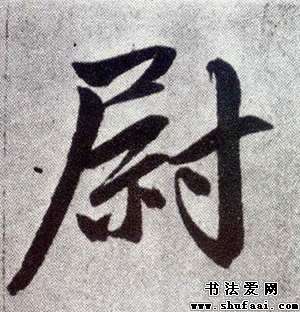 尉
书法爱网
www.shufaai.com